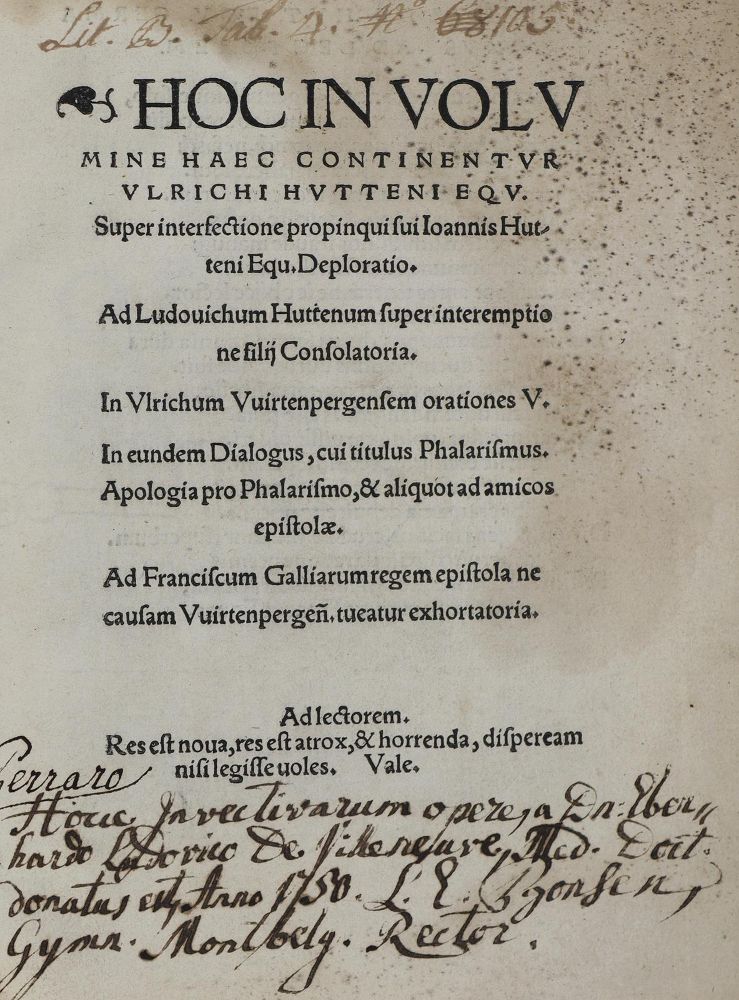 Lit. B. Tab. 4. No 105
HOC IN VOLV
MINE HAEC CONTINENTVR
VLRICHI HVTTENI EQV.
Super interfectione propinqui sui Ioannis Hut-
teni Equ. Deploratio.
Ad Ludouichum Huttenum super interemptio
ne filij Consolatoria.
In Vlrichum Vuirtenpergensem orationes V.
In eundem Dialogus, cui titulus Phalarismus.
Apologia pro Phalarismo, & aliquot ad amicos
epistolæ.
Ad Franciscum Galliarum regem epistola ne
causam Vuirtenpergeñ. tueatur exhortatoria.
Ad lectorem.
Res est noua, res est atrox, & horrenda, dispeream
nisi legisse uoles. Vale.
Ferraro
Hocce Invectivarum opere, a Dn. Eber-
hardo Ludovico De Villeneuve, Med. Doct.
donatus est, Anno 1750. L. E.
Gymn. Montbelg. Rector.